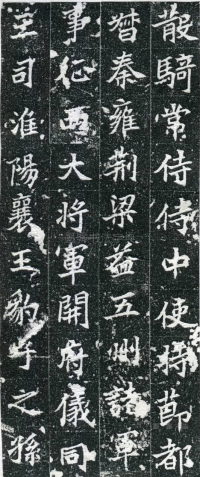 散騎常侍侍中使持莭都
督秦雍荊梁益五州諸軍
事征西大将軍開府儀同
三司淮陽襄王豹子之孫